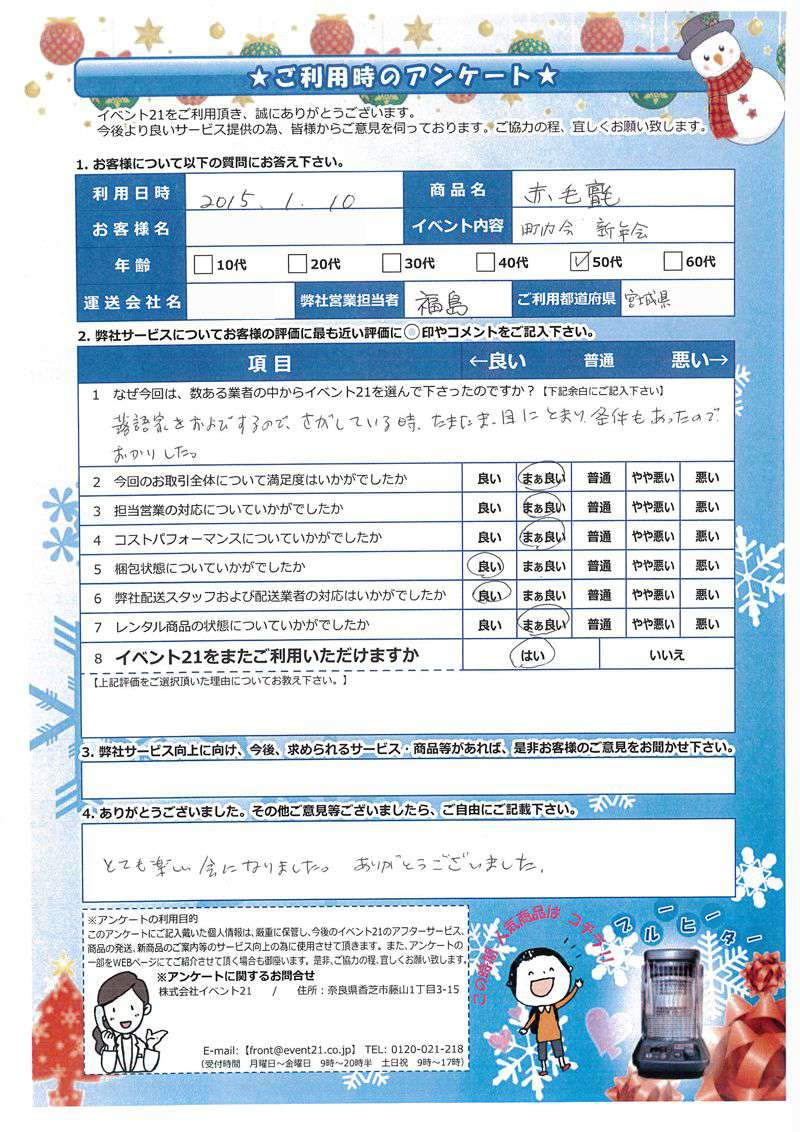 ★ご利用時のアンケート★
イベント21をご利用頂き、誠にありがとうございます。
今後より良いサービス提供の為、皆様からご意見を伺っております。ご協力の程、宜しくお願い致します。
1. お客様について以下の質問にお答え下さい。
利用日時 2015. 1. 10 商品名 赤毛氈
お客様名 イベント内容 町内会 新年会
年齢 10代 20代 30代 40代 50代 60代
運送会社名 弊社営業担当者 福島 ご利用都道府県 宮城県
2. 弊社サービスについてお客様の評価に最も近い評価に○印やコメントをご記入下さい。
項目 ←良い 普通 悪い→
1 なぜ今回は、数ある業者の中からイベント21を選んで下さったのですか？【下記余白にご記入下さい】
落語家をおよびするので、さがしている時、たまたま目にとまり、条件もあったので
おかりした。
2 今回のお取引全体について満足度はいかがでしたか 良い まぁ良い 普通 やや悪い 悪い
3 担当営業の対応についていかがでしたか 良い まぁ良い 普通 やや悪い 悪い
4 コストパフォーマンスについていかがでしたか 良い まぁ良い 普通 やや悪い 悪い
5 梱包状態についていかがでしたか 良い まぁ良い 普通 やや悪い 悪い
6 弊社配送スタッフおよび配送業者の対応はいかがでしたか 良い まぁ良い 普通 やや悪い 悪い
7 レンタル商品の状態についていかがでしたか 良い まぁ良い 普通 やや悪い 悪い
8 イベント21をまたご利用いただけますか はい いいえ
【上記評価をご選択頂いた理由についてお教え下さい。】
3. 弊社サービス向上に向け、今後、求められるサービス・商品等があれば、是非お客様のご意見をお聞かせ下さい。
4. ありがとうございました。その他ご意見等ございましたら、ご自由にご記載下さい。
とても楽しい会になりました。 ありがとうございました。
※アンケートの利用目的
このアンケートにご記入戴いた個人情報は、厳重に保管し、今後のイベント21のアフターサービス、
商品の発送、新商品のご案内等のサービス向上の為に使用させて頂きます。また、アンケートの
一部をWEBページにてご紹介させて頂く場合も御座います。是非、ご協力の程、宜しくお願い致します。
※アンケートに関するお問合せ
株式会社イベント21 / 住所：奈良県香芝市藤山1丁目3-15
E-mail:【front@event21.co.jp】 TEL: 0120-021-218
（受付時間 月曜日～金曜日 9時～20時半 土日祝 9時～17時）
この時期 人気商品は コチラ!!
ブルーヒーター